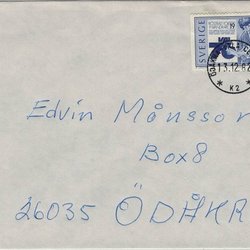 SVERIGE
13.12.82
K2
Edvin Månsson
Box 8
26035 ÖDÅKR